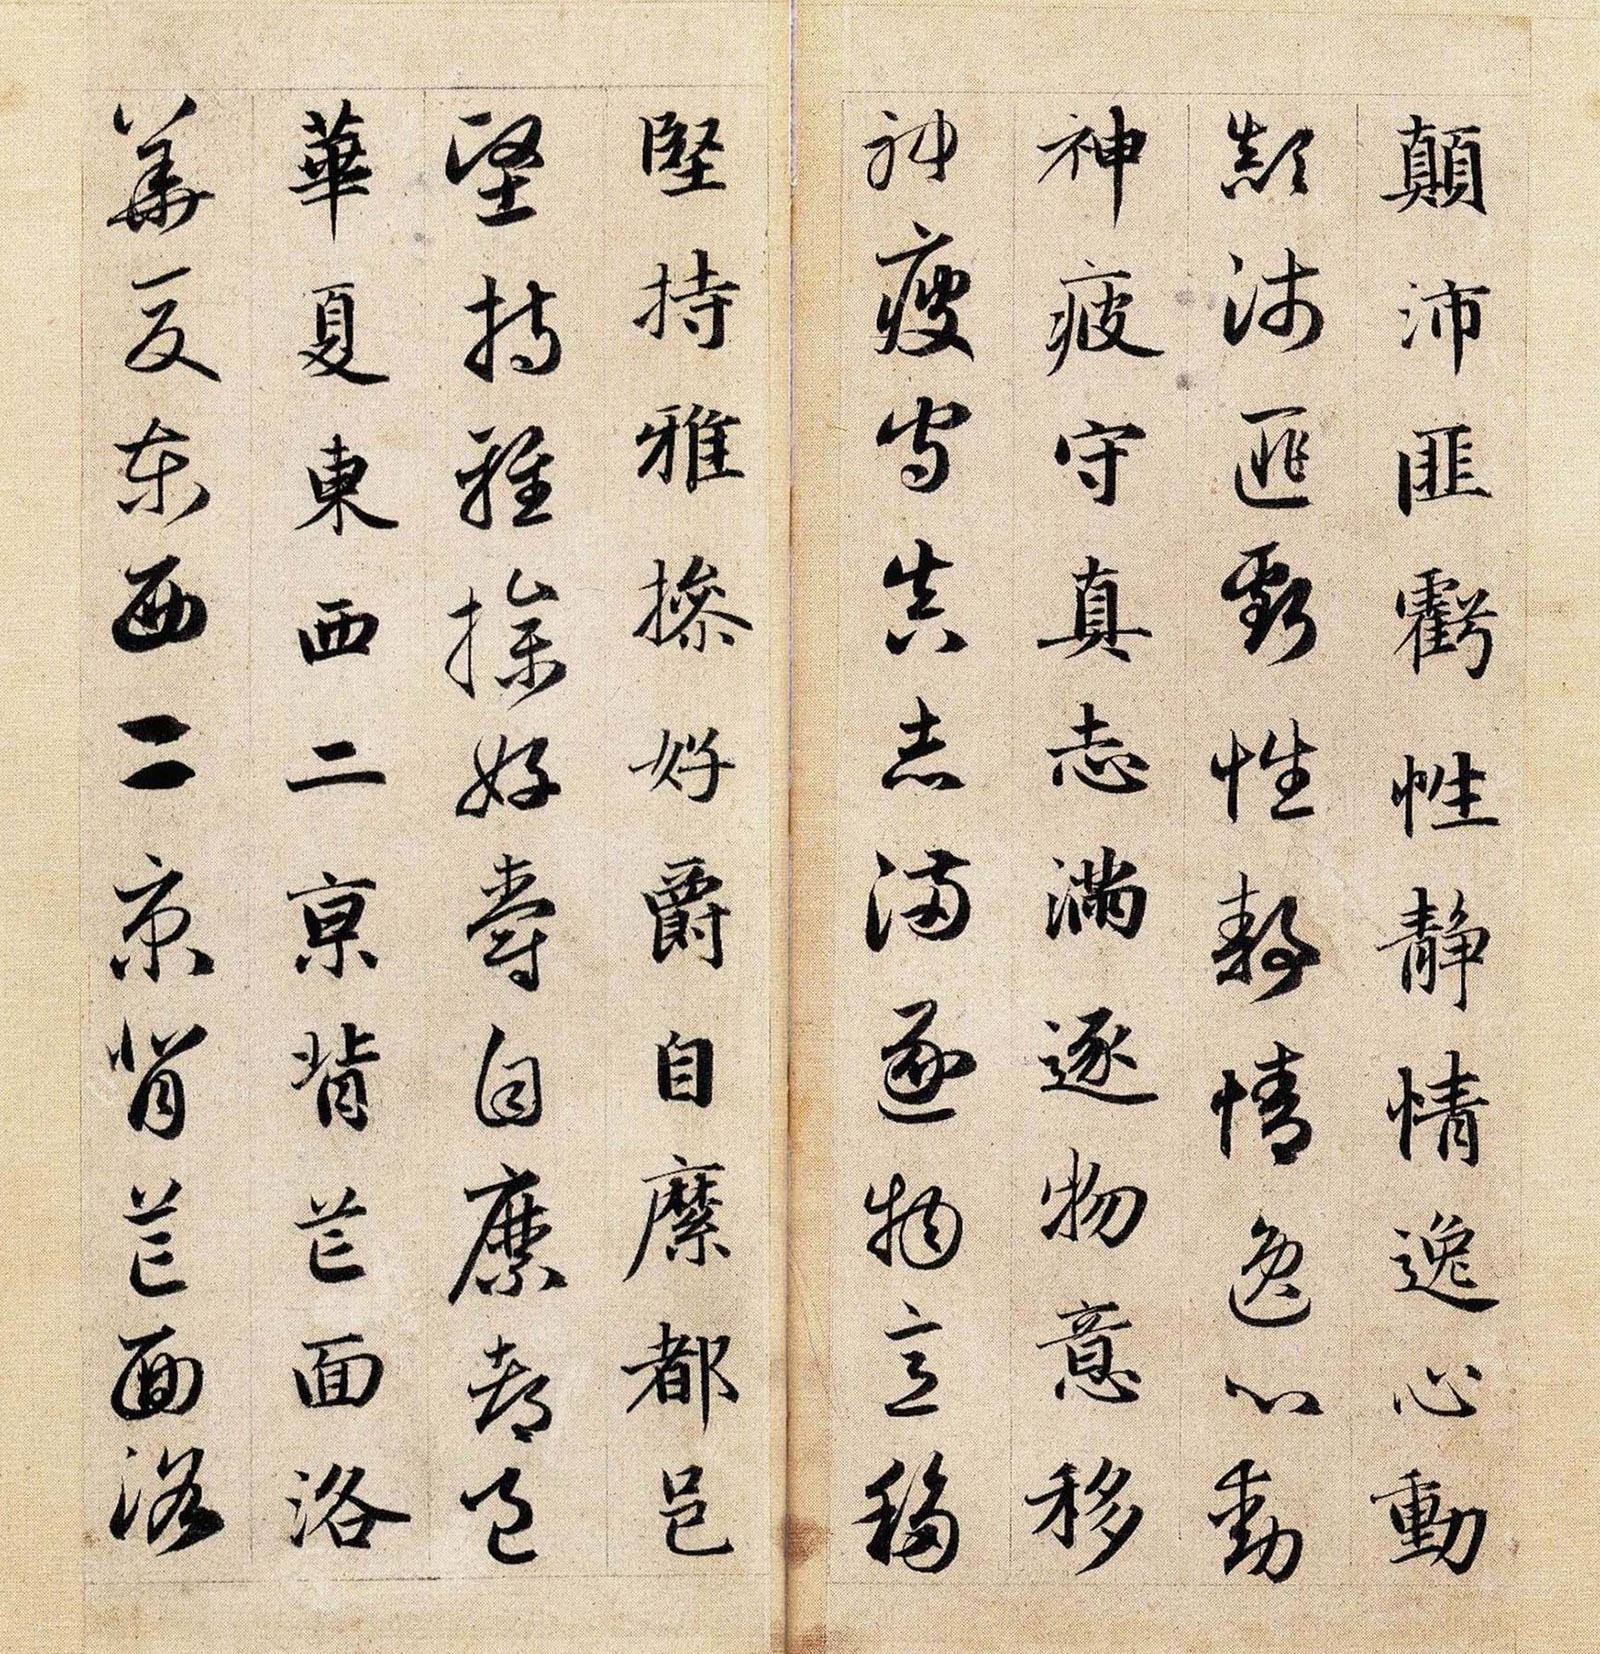 顛沛匪虧性静情逸心動
顛沛匪虧性静情逸心動
神疲守真志滿逐物意移
神疲守真志滿逐物意移
堅持雅操好爵自縻都邑
堅持雅操好爵自縻都邑
華夏東西二京背芒面洛
華夏東西二京背芒面洛